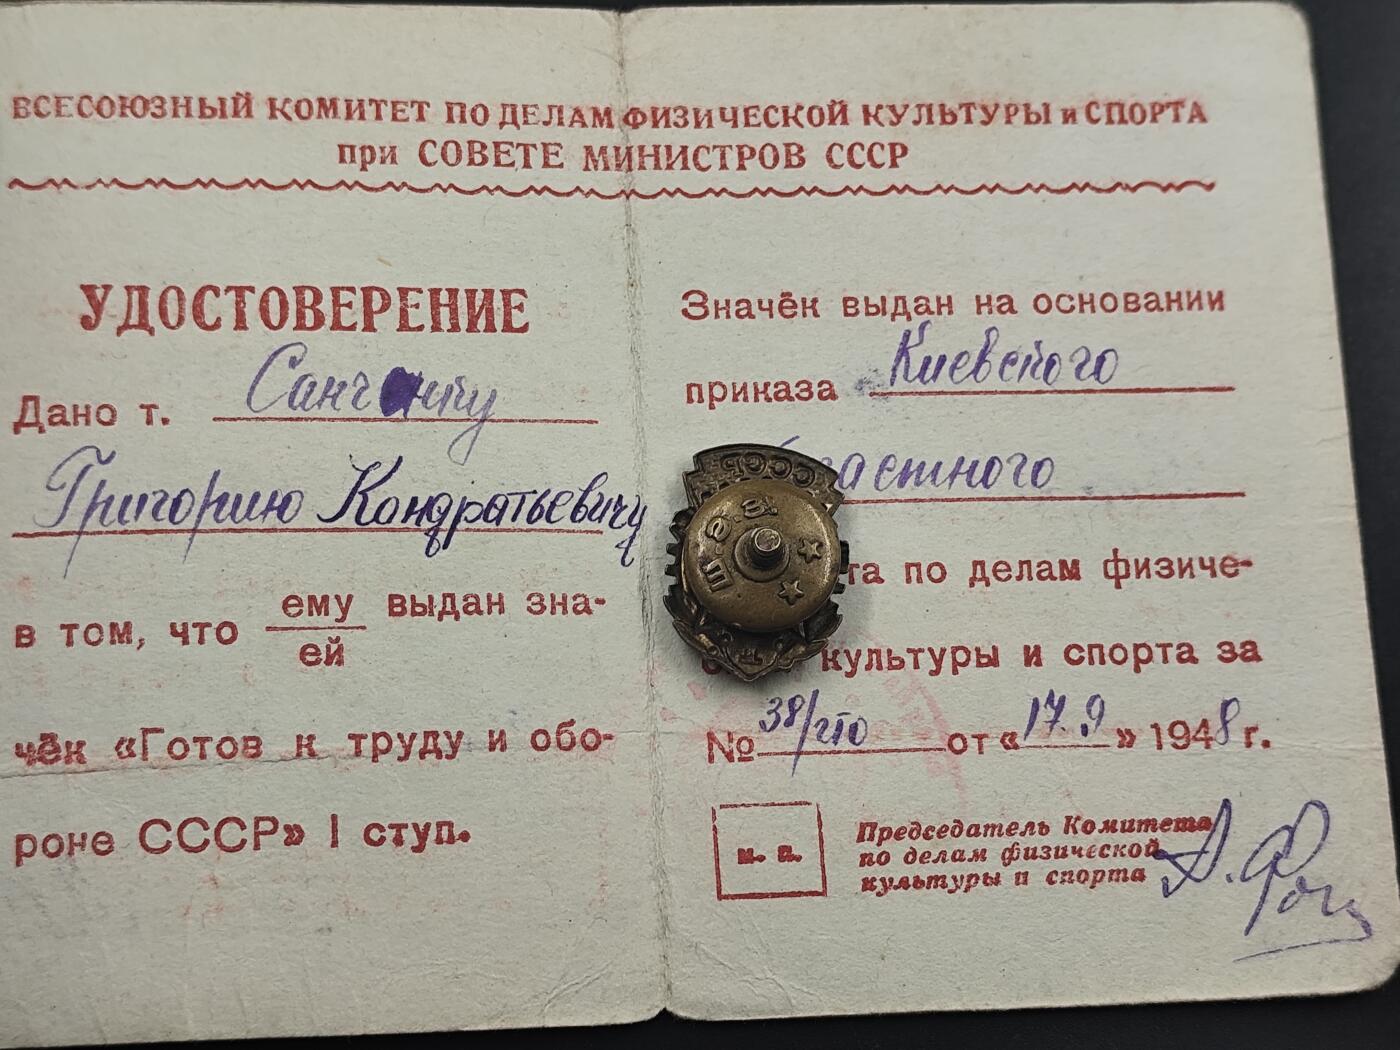 ВСЕСОЮЗНЫЙ КОМИТЕТ ПО ДЕЛАМ ФИЗИЧЕСКОЙ КУЛЬТУРЫ и СПОРТА
при СОВЕТЕ МИНИСТРОВ СССР
УДОСТОВЕРЕНИЕ
Дано т.
Григорию Кондратьевичу
в том, что ему выдан зна-
ей
чёк «Готов к труду и обо-
роне СССР» I ступ.
Значёк выдан на основании
приказа Киевского
астного
та по делам физиче-
культуры и спорта за
№ 38/гто от «17.9» 1948 г.
м. п.
Председатель Комитета
по делам физической
культуры и спорта
СССР